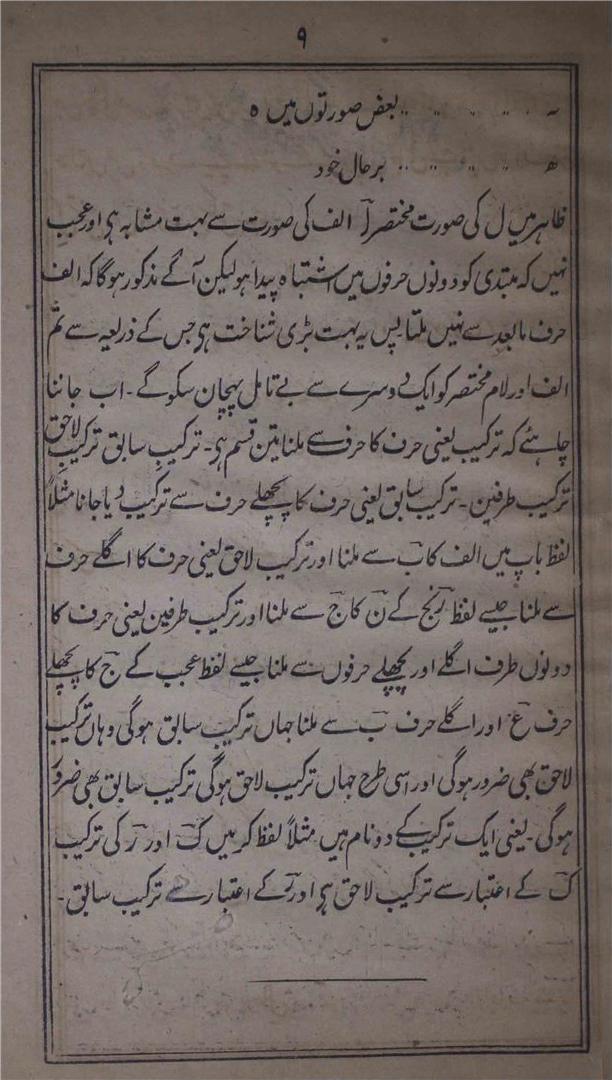 ۹
؎ ،، ،، ،، ،، ،، بعض صورتوں میں ہ
ھ ،، ،، ،، ،، ،، بر حال خود
ظاہر میں ل کی صورت مختصر لـ الف کی صورت سے بہت مشابہ ہی اور عجب
نہیں کہ مبتدی کو دونوں حرفوں میں اشتباہ پیدا ہو لیکن آگے مذکور ہوگا کہ الف
حرف مابعد سے نہیں ملتا پس یہ بہت بڑی شناخت ہی جس کے ذریعہ سے تم
الف اور لام مختصر کو ایک دوسرے سے بے تامل پہچان سکوگے۔ اب جاننا
چاہئے کہ ترکیب یعنی حرف کا حرف سے ملنا تین قسم ہی۔ ترکیبِ سابق ترکیبِ لاحق
ترکیب طرفین۔ ترکیب سابق یعنی حرف کا پچھلے حرف سے ترکیب دیا جانا مثلاً
لفظ باپ میں الف کا ب سے ملنا اور ترکیب لاحق یعنی حرف کا اگلے حرف
سے ملنا جیسے لفظ رنج کے ن کا ج سے ملنا اور ترکیب طرفین یعنی حرف کا
دونوں طرف اگلے اور پچھلے حرفوں سے ملنا جیسے لفظ عجب کے ج کا پچھلے
حرف ع اور اگلے حرف ب سے ملنا جہاں ترکیب سابق ہوگی وہاں ترکیب
لاحق بھی ضرور ہوگی اور اسی طرح جہاں ترکیب لاحق ہوگی ترکیب سابق بھی ضرور
ہوگی۔ یعنی ایک ترکیب کے دو نام ہیں مثلاً لفظ کر میں ک اور ر کی ترکیب
ک کے اعتبار سے ترکیب لاحق ہی اور ر کے اعتبار سے ترکیب سابق۔